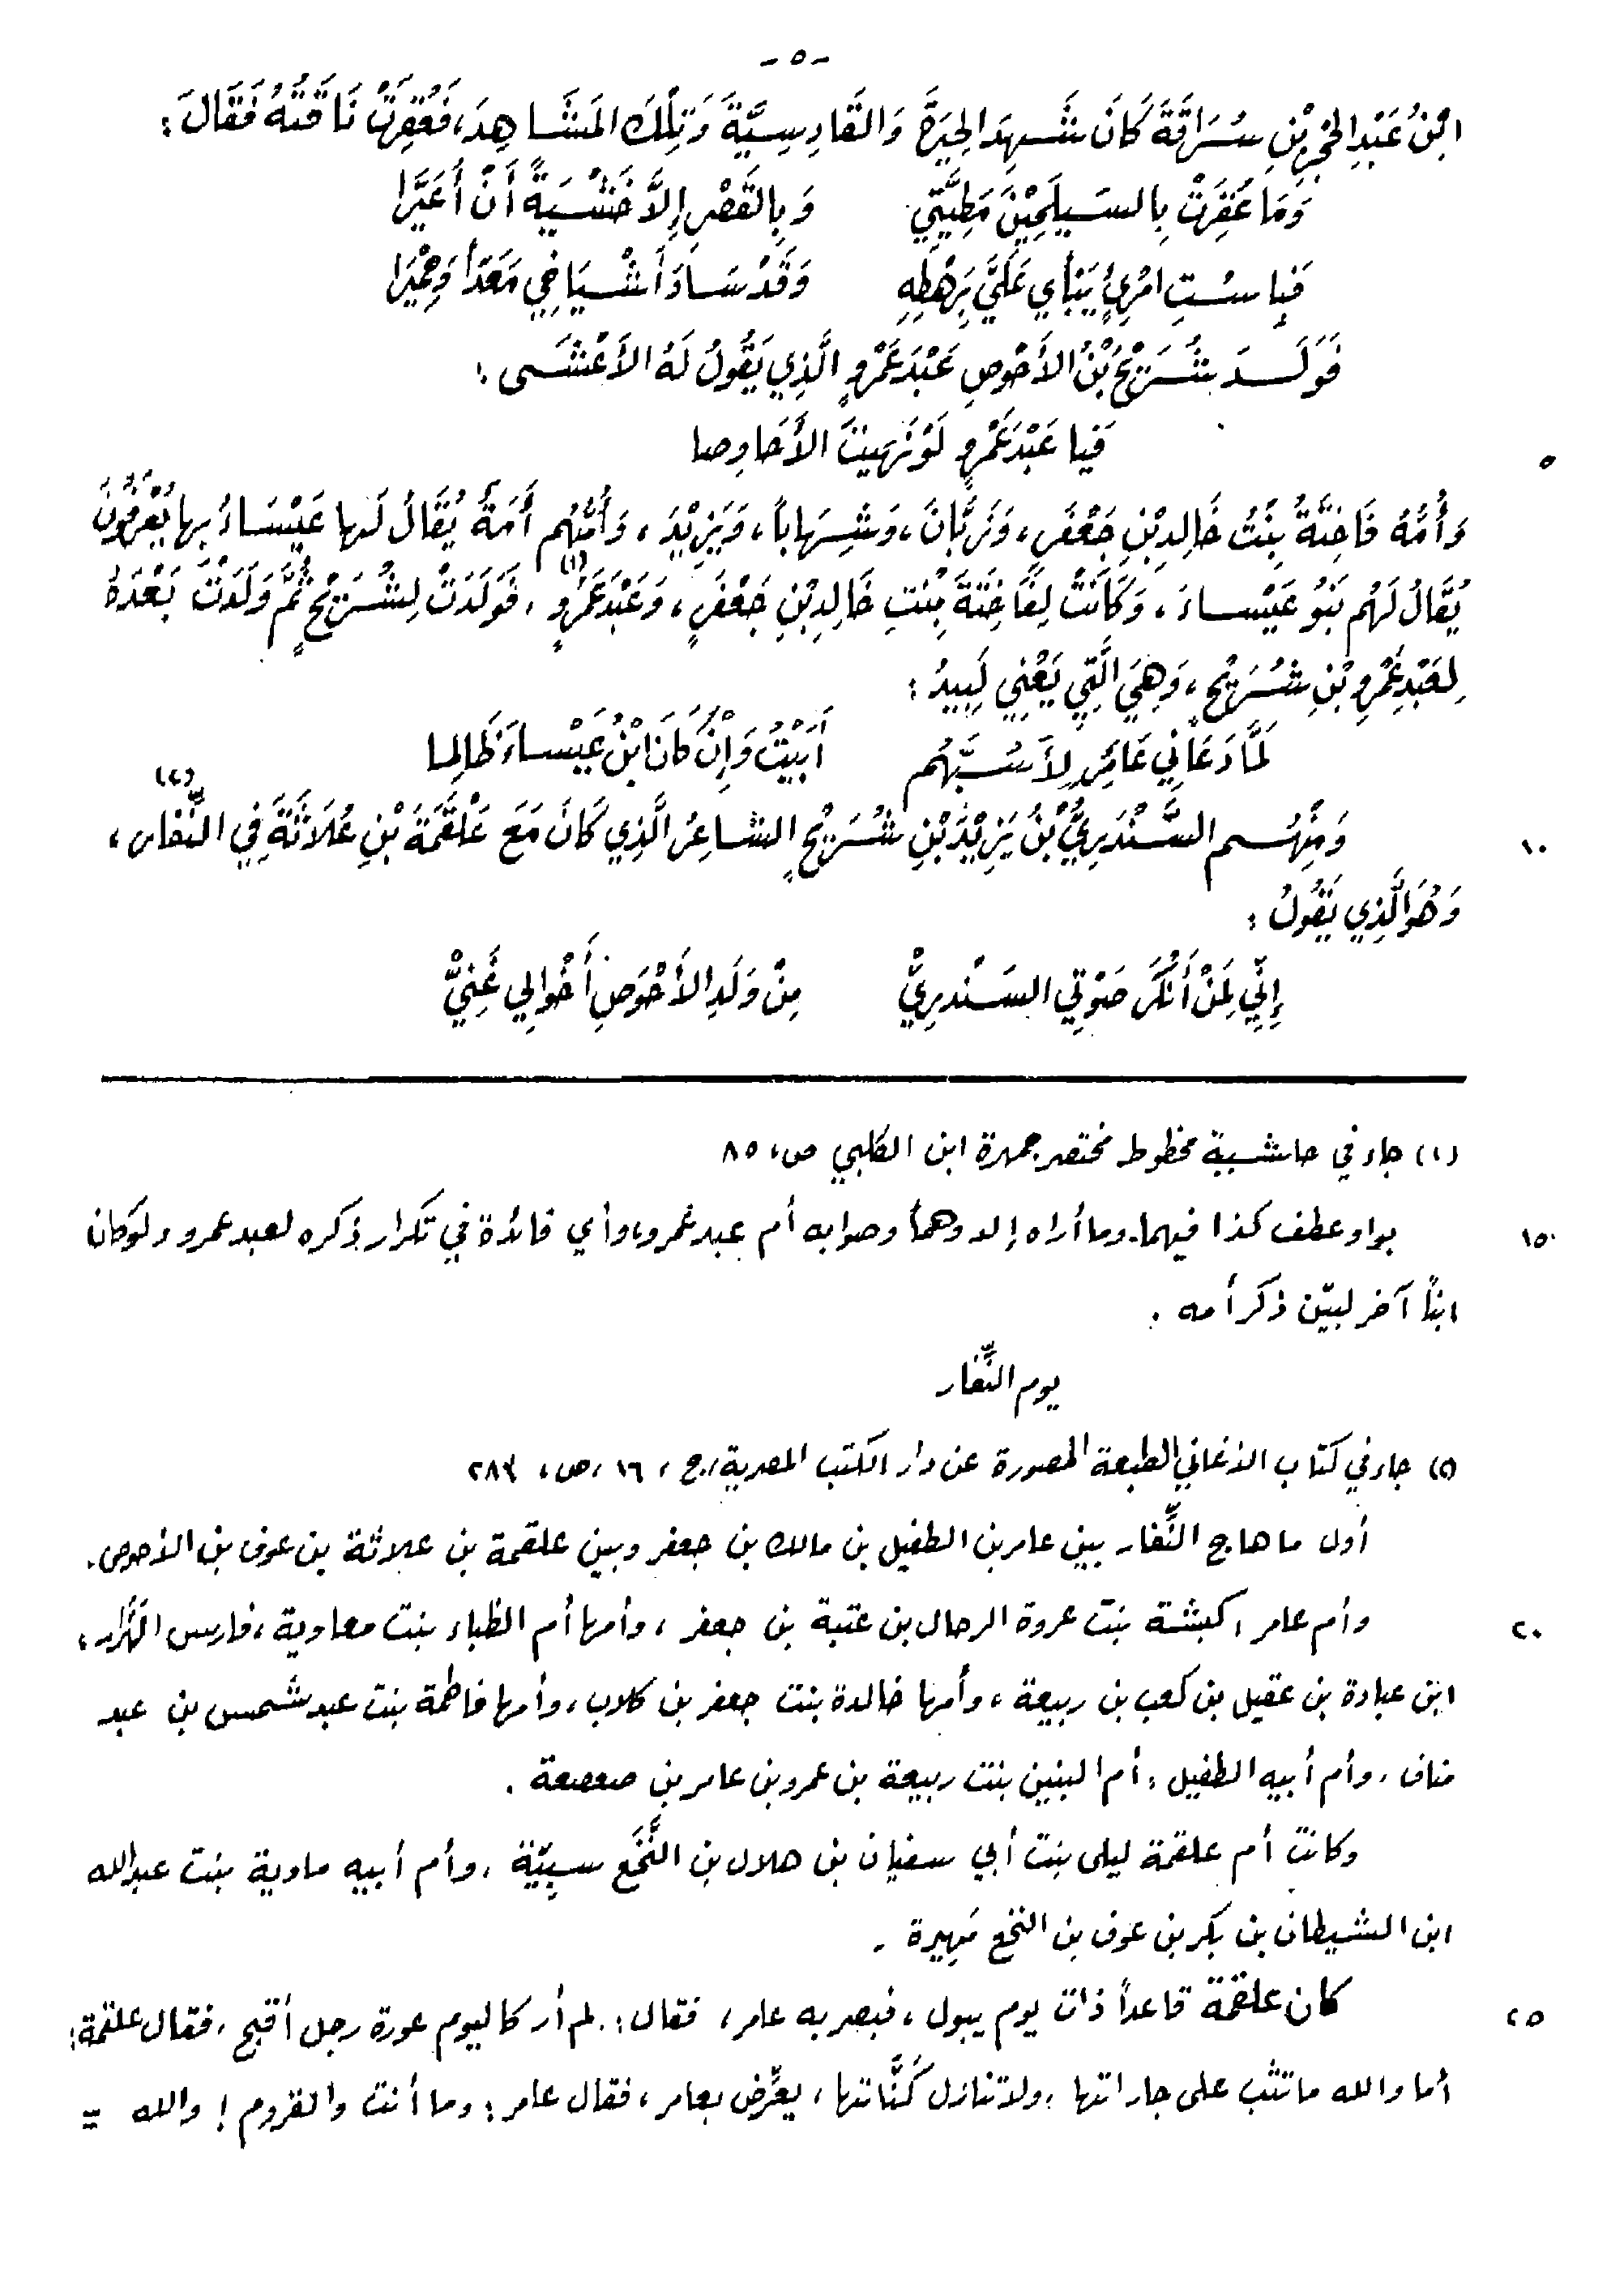 -٥-
ابْنُ عَبْدِ الحِجْرِ بْنِ سُرَاقَةَ كَانَ شَهِدَ الحِيرَةَ وَالقَادِسِيَّةَ وَتِلْكَ المَشَاهِدَ، فَعُقِرَتْ نَاقَتُهُ فَقَالَ:
وَمَا عُقِرَتْ بِالسَيلَحِيْنَ مَطِيَّتِي وَبِالقَصْرِ إِلاَّ خَشْيَةً أَنْ أُعَيَّرا
فَبِاسْتِ امْرِئٍ يَبْأَي عَلَيَّ بِرَهْطِهِ وَقَدْ سَادَ أَشْيَاخِي مَعَدّاً وَحِمْيَرا
فَوَلَدَ شُرَيْحُ بْنُ الأَحْوَصِ عَبْدَ عَمْرٍو الَّذِي يَقُولُ لَهُ الأَعْشَى:
فَيا عَبْدَ عَمْرٍو لَوْ نَهَيْتَ الأَحَاوِصا
٥
وَأُمُّهُ فَاخِتَةُ بِنْتُ خَالِدِ بْنِ جَعْفَرٍ، وَزَبَّانَ، وَشِهَاباً، وَيَزِيْدَ، وَأُمُّهُم أَمَةٌ يُقَالُ لَها عَيْسَاءُ بِها يُعْرَفُونَ
يُقَالُ لَهُم بَنُو عَيْساءَ، وَكَانَتْ لِفَاخِتَةَ بِنْتِ خَالِدِ بْنِ جَعْفَرٍ، وَعَبْدَ عَمْرٍو (١)، فَوَلَدَتْ لِشُرَيْحٍ ثُمَّ وَلَدَتْ بَعْدَهُ
لِعَبْدِ عَمْرِو بْنِ شُرَيْحٍ، وَهِيَ الَّتِي يَعْنِي لَبِيدُ:
لَمَّا دَعَانِي عَامِرٌ لِأَسُبَّهُم أَبَيْتُ وَإِنْ كَانَ ابْنُ عَيْساءَ ظَالِما
وَمِنْهُم السَّنْدَرِيُّ بْنُ يَزِيْدَ بْنِ شُرَيْحٍ الشاعِرُ الَّذِي كَانَ مَعَ عَلْقَمَةَ بْنِ عُلَاثَةَ فِي النِّفار (٢)،
١٠
وَهُوَ الَّذِي يَقُولُ:
إِنِّي لِمَنْ أَنْكَرَ صَوْتِي السَنْدرِيّْ مِنْ وَلَدِ الأَحْوَصِ أَخْوالِي غَنِيّْ
(١) جاء في حاشية مخطوط مختصر جمهرة ابن الكلبي ص، ٨٥
بواو عطف كذا فيهما. وما أراه إلا وهماً وصوابه أم عبد عمرو، وأي فائدة في تكرار ذكره لعبد عمرو ولو كان
١٥
ابناً آخر لبيّن ذكر أمه.
يوم النِّفار
(٢) جاء في كتاب الأغاني الطبعة المصورة عن دار الكتب المصرية، ج، ١٦، ص، ٢٨٣
أول ما هاج النِّفار بين عامر بن الطفيل بن مالك بن جعفر وبين علقمة بن علاثة بن عوف بن الأحوص.
وأم عامر، كبشة بنت عروة الرحال بن عتبة بن جعفر، وأمها أم الظباء بنت معاوية، فارس الهَرَّار،
٢٠
ابن عبادة بن عقيل بن كعب بن ربيعة، وأمها خالدة بنت جعفر بن كلاب، وأمها فاطمة بنت عبد شمس بن عبد
مناف، وأم أبيه الطفيل، أم البنين بنت ربيعة بن عمرو بن عامر بن صعصعة.
وكانت أم علقمة ليلى بنت أبي سفيان بن هلال بن النَّخَع سبيّة، وأم أبيه ماوية بنت عبد الله
ابن الشيطان بن بكر بن عوف بن النخع مَهِيرة.
كان علقمة قاعداً ذات يوم يبول، فبصر به عامر، فقال: لم أر كاليوم عورة رجل أقبح، فقال علقمة:
٢٥
أما والله ما تثب على جاراتها، ولا تنازل كَنَّاتها، يعرِّض بعامر، فقال عامر: وما أنت والقروم! والله =